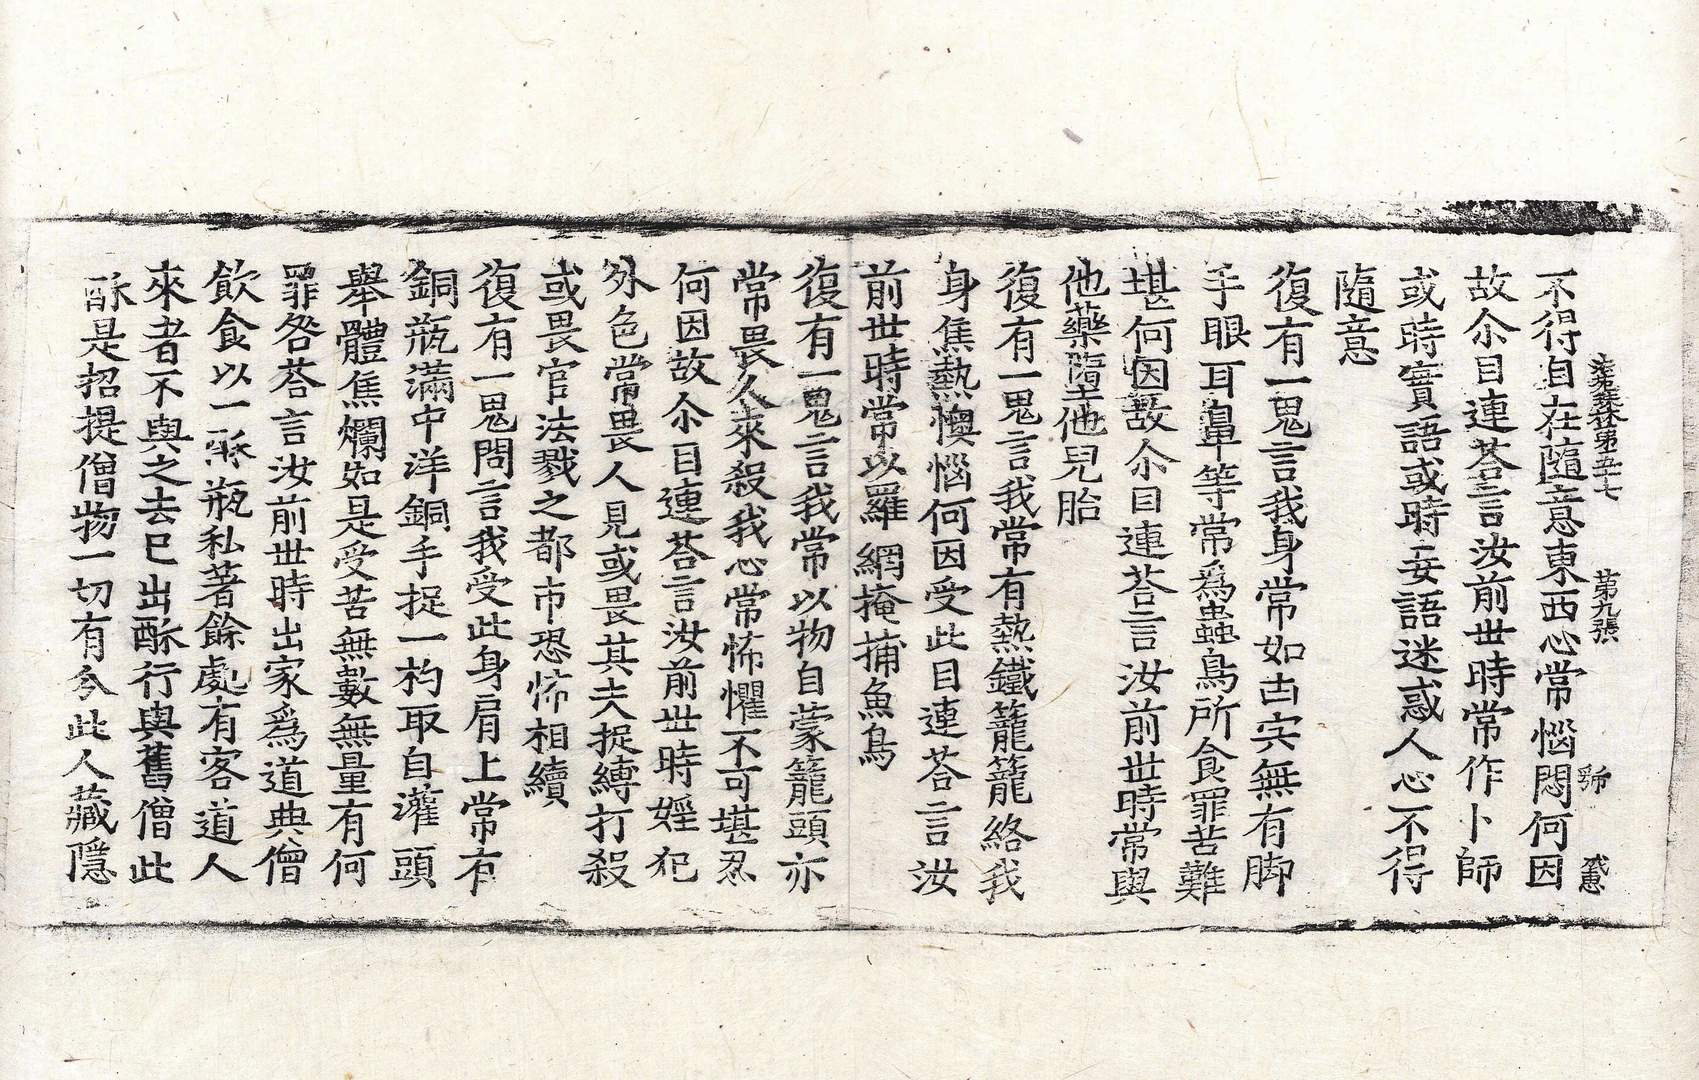 法苑珠林第五十七 第九張 弊 戒惠
不得自在隨意東西心常惱悶何因
故尒目連荅言汝前世時常作卜師
或時實語或時妄語迷惑人心不得
隨意
復有一鬼言我身常如凷宍無有脚
手眼耳鼻等常爲蟲鳥所食罪苦難
堪何因故尒目連荅言汝前世時常與
他藥墮他兒胎
復有一鬼言我常有熱鐵籠籠絡我
身焦熱懊惱何因受此目連荅言汝
前世時常以羅網掩捕魚鳥
復有一鬼言我常以物自蒙籠頭亦
常畏人來殺我心常怖懼不可堪忍
何因故尒目連荅言汝前世時婬犯
外色常畏人見或畏其夫捉縛打殺
或畏官法戮之都市恐怖相續
復有一鬼問言我受此身肩上常有
銅瓶滿中洋銅手捉一杓取自灌頭
舉體焦爛如是受苦無數無量有何
罪咎荅言汝前世時出家爲道典僧
飲食以一酥瓶私著餘處有客道人
來者不與之去已出酥行與舊僧此
酥是招提僧物一切有分此人藏隱